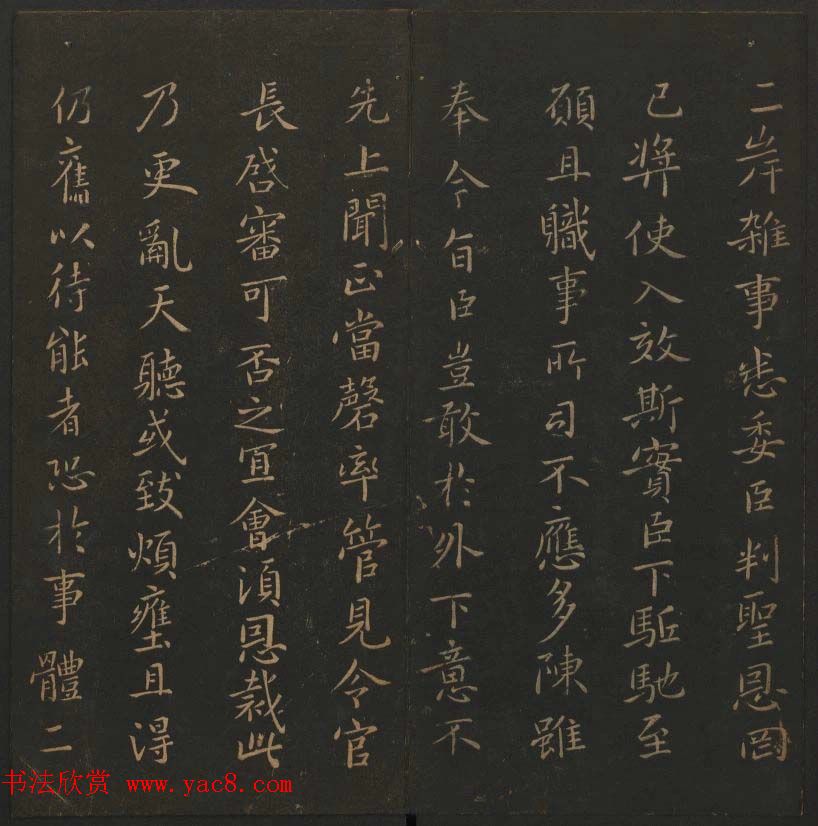 二岸雜事悉委臣判聖恩罔
已弊使入效斯實臣下駈馳至
願且職事所司不應多陳雖
奉令旨臣豈敢於外下意不
先上聞正當罄率管見令官
長啓審可否之宜會須恩裁此
乃更亂天聽或致煩壅且得
仍舊以待能者恐於事體二
书法欣赏 www.yac8.com